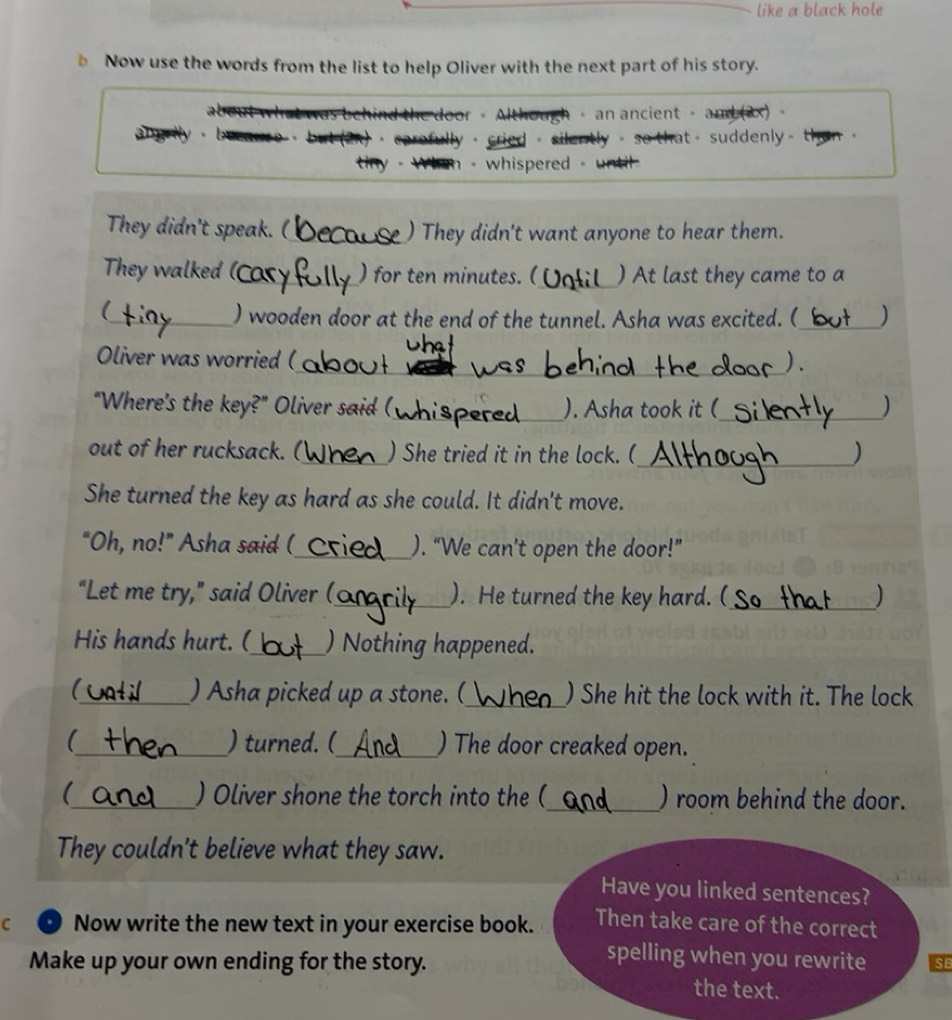 like a black hole
b Now use the words from the list to help Oliver with the next part of his story.
about what was behind the door · Although · an ancient · and (2x) ·
angrily · because · but (2x) · carefully · cried · silently · so that · suddenly · then ·
tiny · When · whispered · until
They didn't speak. (because) They didn't want anyone to hear them.
They walked (caryfully) for ten minutes. (Until) At last they came to a
(tiny) wooden door at the end of the tunnel. Asha was excited. (but)
Oliver was worried (about what was behind the door).
"Where's the key?" Oliver said (whispered). Asha took it (silently)
out of her rucksack. (When) She tried it in the lock. (Although)
She turned the key as hard as she could. It didn't move.
"Oh, no!" Asha said (cried). "We can't open the door!"
"Let me try," said Oliver (angrily). He turned the key hard. (So that)
His hands hurt. (but) Nothing happened.
(until) Asha picked up a stone. (When) She hit the lock with it. The lock
(then) turned. (And) The door creaked open.
(and) Oliver shone the torch into the (and) room behind the door.
They couldn't believe what they saw.
c Now write the new text in your exercise book.
Make up your own ending for the story.
Have you linked sentences?
Then take care of the correct
spelling when you rewrite
the text.
SB